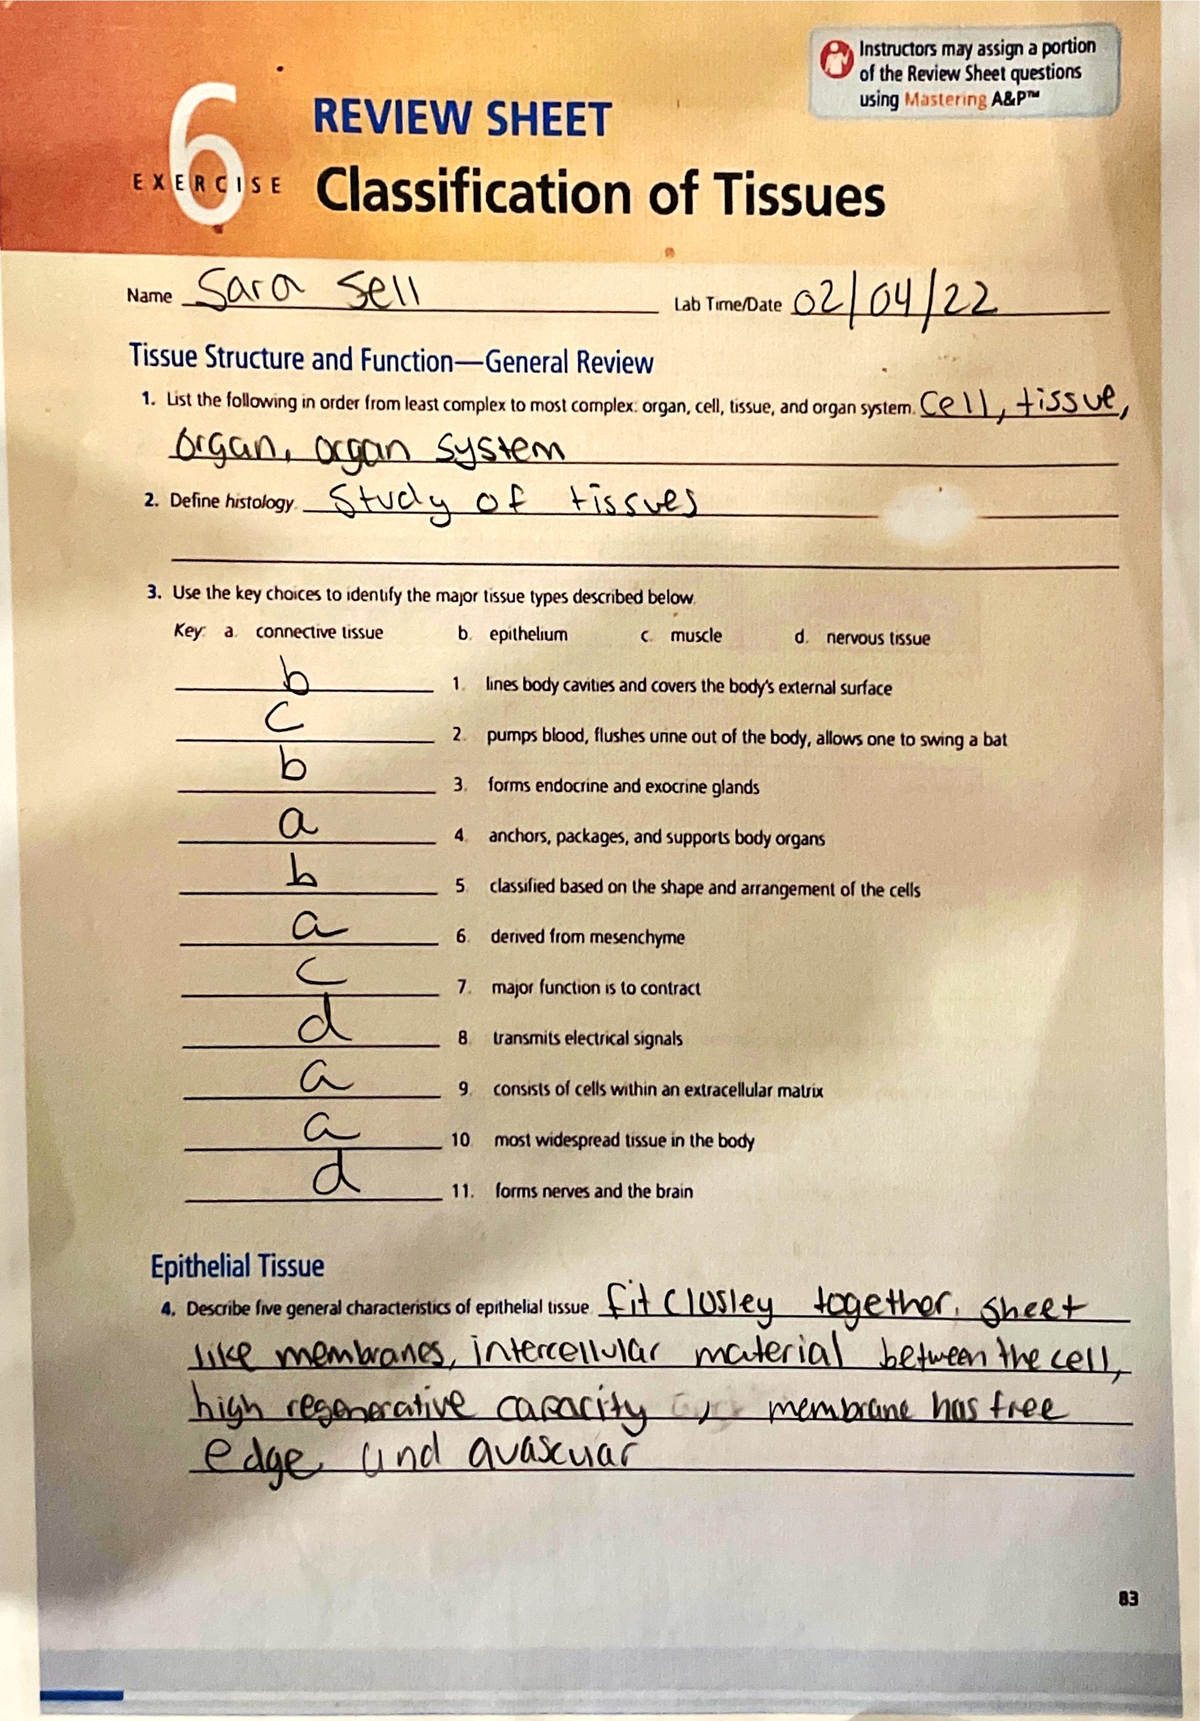 Instructors may assign a portion
of the Review Sheet questions
using Mastering A&P™
6
EXERCISE
REVIEW SHEET
Classification of Tissues
Name Sara Sell Lab Time/Date 02/04/22
Tissue Structure and Function—General Review
1. List the following in order from least complex to most complex: organ, cell, tissue, and organ system. Cell, tissue,
organ, organ system
2. Define histology. Study of tissues
3. Use the key choices to identify the major tissue types described below.
Key: a. connective tissue b. epithelium c. muscle d. nervous tissue
b 1. lines body cavities and covers the body's external surface
c 2. pumps blood, flushes urine out of the body, allows one to swing a bat
b 3. forms endocrine and exocrine glands
a 4. anchors, packages, and supports body organs
b 5. classified based on the shape and arrangement of the cells
a 6. derived from mesenchyme
c 7. major function is to contract
d 8. transmits electrical signals
a 9. consists of cells within an extracellular matrix
a 10. most widespread tissue in the body
d 11. forms nerves and the brain
Epithelial Tissue
4. Describe five general characteristics of epithelial tissue. fit closley together, sheet
like membranes, intercellular material between the cell,
high regenerative capacity , membrane has free
edge and avascuar
83